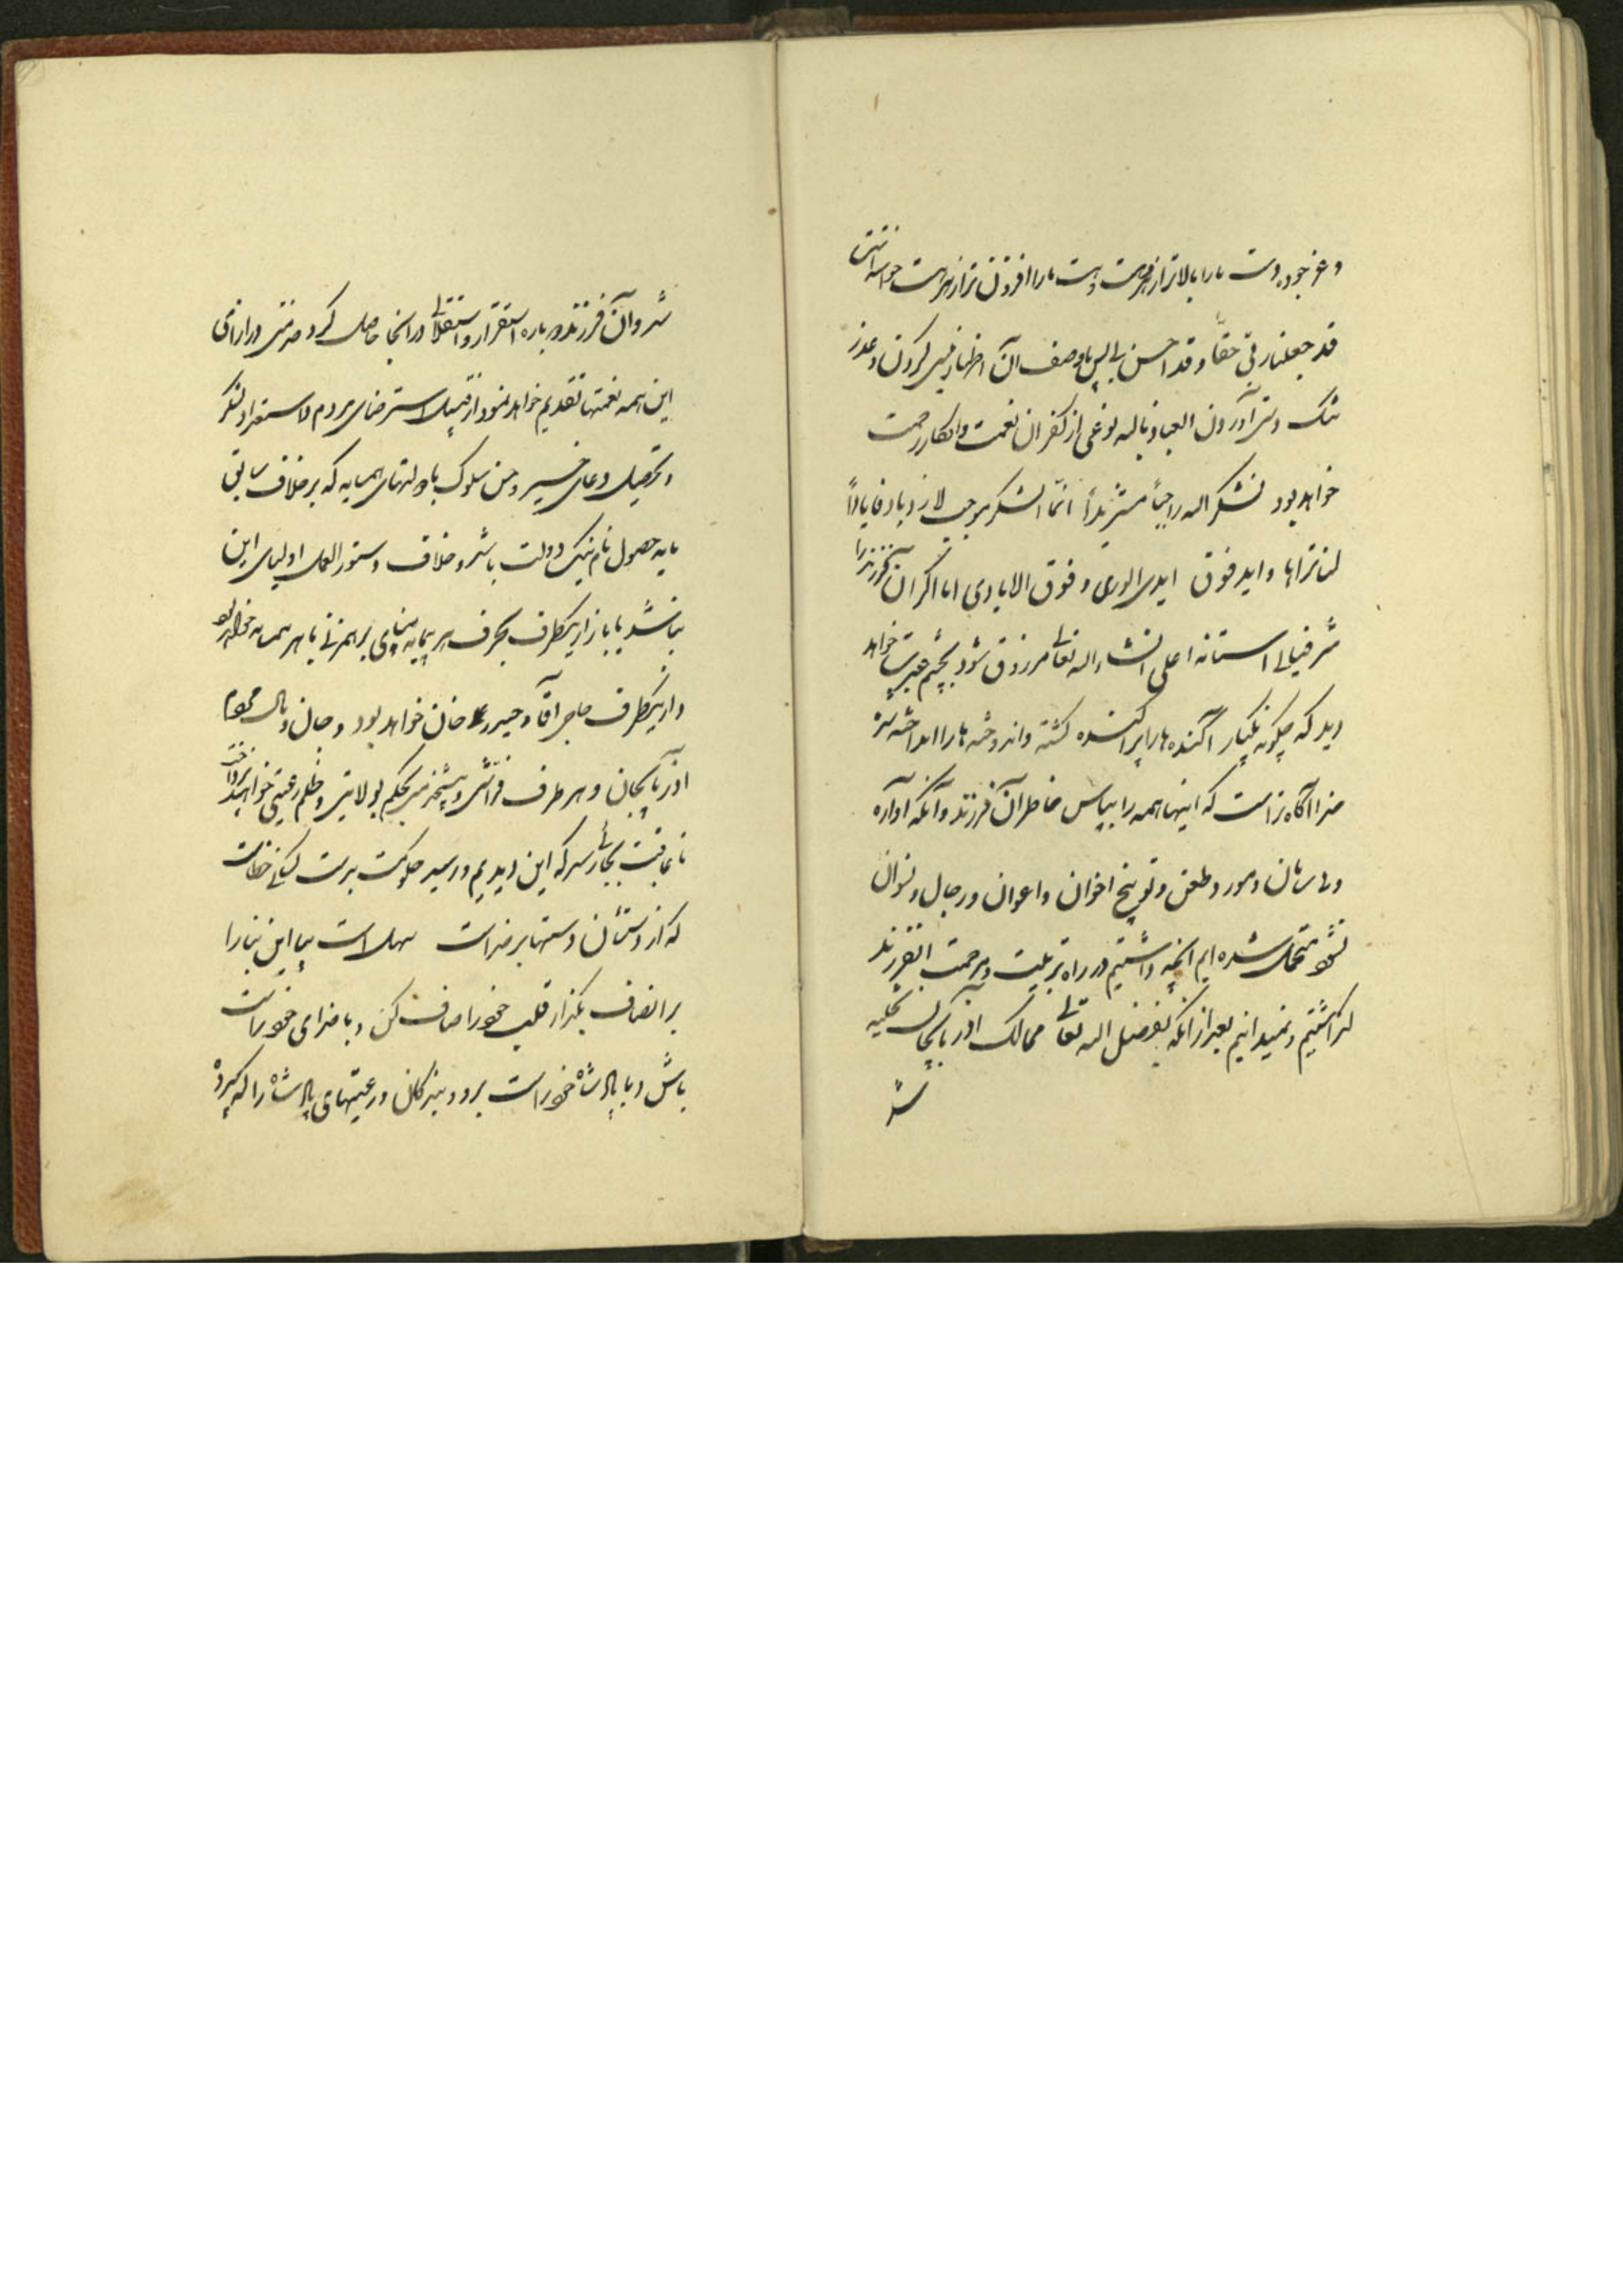 و عز جوده دست ما را بالاتر از هر دست و هست ما را افزون تر از هر هست خواسته است
قد جعلنا ربی حقا و قد احسن بی پس با وصف آن اظهار نیس کردن و عذر
تنگ دستی آوردن العیاذ بالله نوعی از کفران نعمت و انکار رحمت
خواهد بود نشکر الله راجیا مستزیدا انما الشکر موجب لازدیاد فایادا
لنا نراها و اید فوق ایدی الوری و فوق الایادی اما اگر آن فرزند را
شرفیابی آستانه اعلی انشاء الله تعالی مرزوق شود بچشم عبرت خواهد
دید که چگونه یکبار آکنده ها پراکنده گشته و اندوخته ها را انداخته شده
خدا آگاه تر است که اینها همه را بپاس خاطر آن فرزند و آنکه آواره
و بی سامان و مورد طعن و توبیخ اخوان و اعوان و رجال و نسوان
نشود متحمل شده ایم آنچه داشتیم در راه تربیت و مرحمت آن فرزند
گذاشتیم و نمیدانیم بعد از آنکه بفضل الله تعالی ممالک آذربایجان تخلیه
شد
شد و آن فرزند دوباره استقرار و استقلالی در آنجا حاصل کرد خدمتی در ازای
این همه نعمتها تقدیم خواهد نمود از قبیل استرضای مردم و استعداد لشکر
و تحصیل دعای خیر و حسن سلوک با دولتهای همسایه که برخلاف سابق
مایه حصول نام نیک دولت باشد و خلاف دستور العمل اولیای این
نباشد یا باز از یکطرف بحرف هر بیمایه بنای برهم زنی با هر همسایه خواهد بود
و از یکطرف حاجی آقا و حیدر علی خان خواهد بود و جان و مال مردم
آذربایجان و هر طرف فراشی و پیشخدمتی بحکم بولایتی و ظلم رعیتی خواهد پرداخت
تا عاقبت بجائی رسد که این دیدیم و رسید حکومت بدست کسانی خطاست
که از دستشان دستها بر خداست سهل است بیا این بنا را
بر انصاف بگذار قلب خود را صاف کن و با خدای خود راست
باش و با پادشاه خود راست برو و بندگان و رعیتهای پادشاه را که سپرده